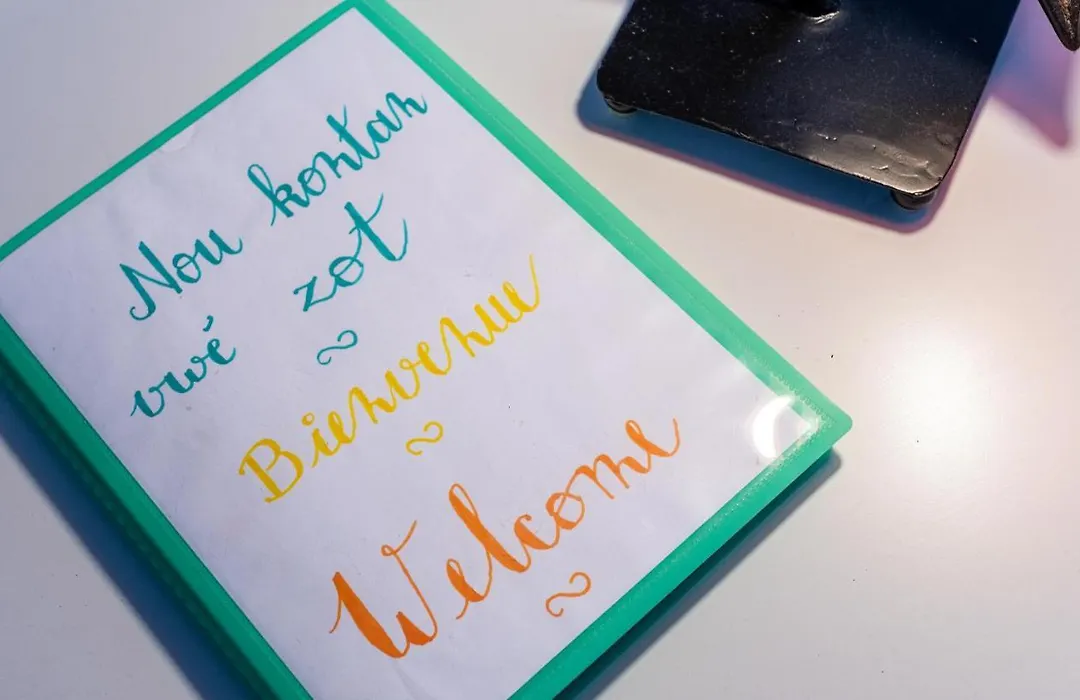 Nou kontan
vwé zot
~
Bienvenue
~
Welcome
~